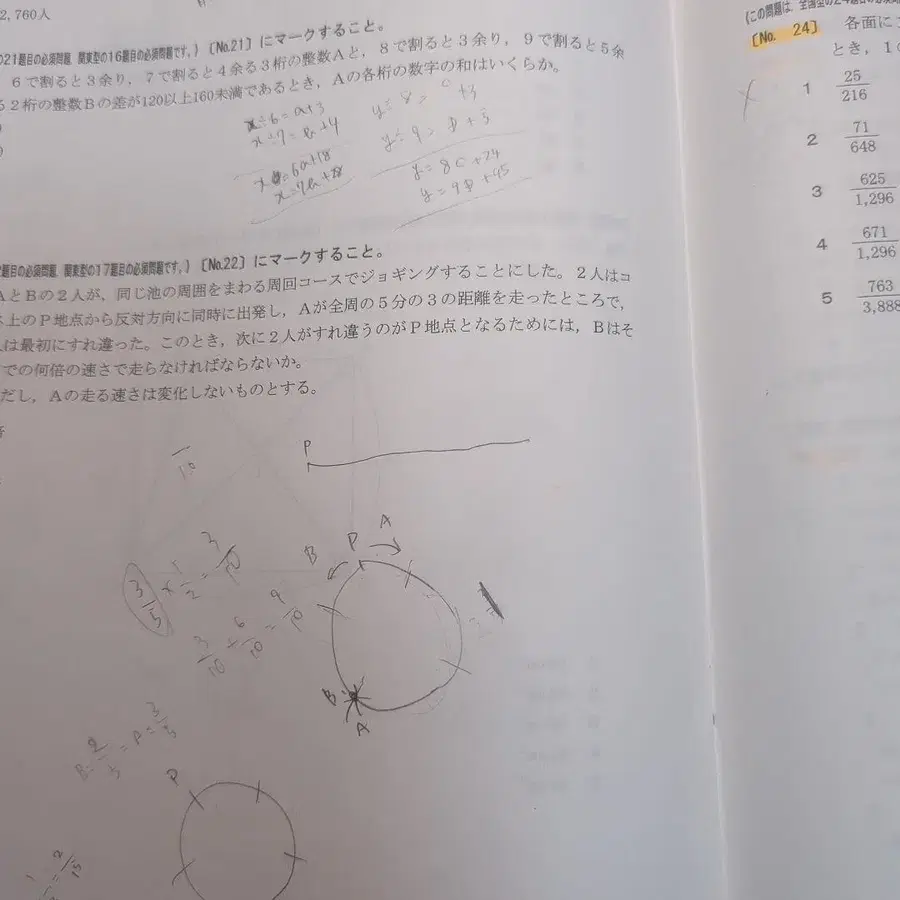 2,760人
の21題目の必須問題 関東型の16題目の必須問題です。)〔No.21〕にマークすること。
6で割ると3余り，7で割ると4余る3桁の整数Aと，8で割ると3余り，9で割ると5余
る2桁の整数Bの差が120以上160未満であるとき，Aの各桁の数字の和はいくらか。
x÷6=a+3
x÷7=b+4
x=6a+18
x=7b+28
y÷8=c+3
y÷9=D+5
y=8c+24
y=9D+45
題目の必須問題 関東型の17題目の必須問題です。)〔No.22〕にマークすること。
AとBの2人が，同じ池の周囲をまわる周回コースでジョギングすることにした。2人はコ
ス上のP地点から反対方向に同時に出発し，Aが全周の5分の3の距離を走ったところで，
人は最初にすれ違った。このとき，次に2人がすれ違うのがP地点となるためには，Bはそ
での何倍の速さで走らなければならないか。
だし，Aの走る速さは変化しないものとする。
P
10
3/5 × 1/2 = 3/10
3/10 + 6/10 = 9/10
B P A
B A
P
2/15
(この問題は，
〔No. 24〕 各面に
とき，1
1 25/216
2 71/648
3 625/1,296
4 671/1,296
5 763/3,888